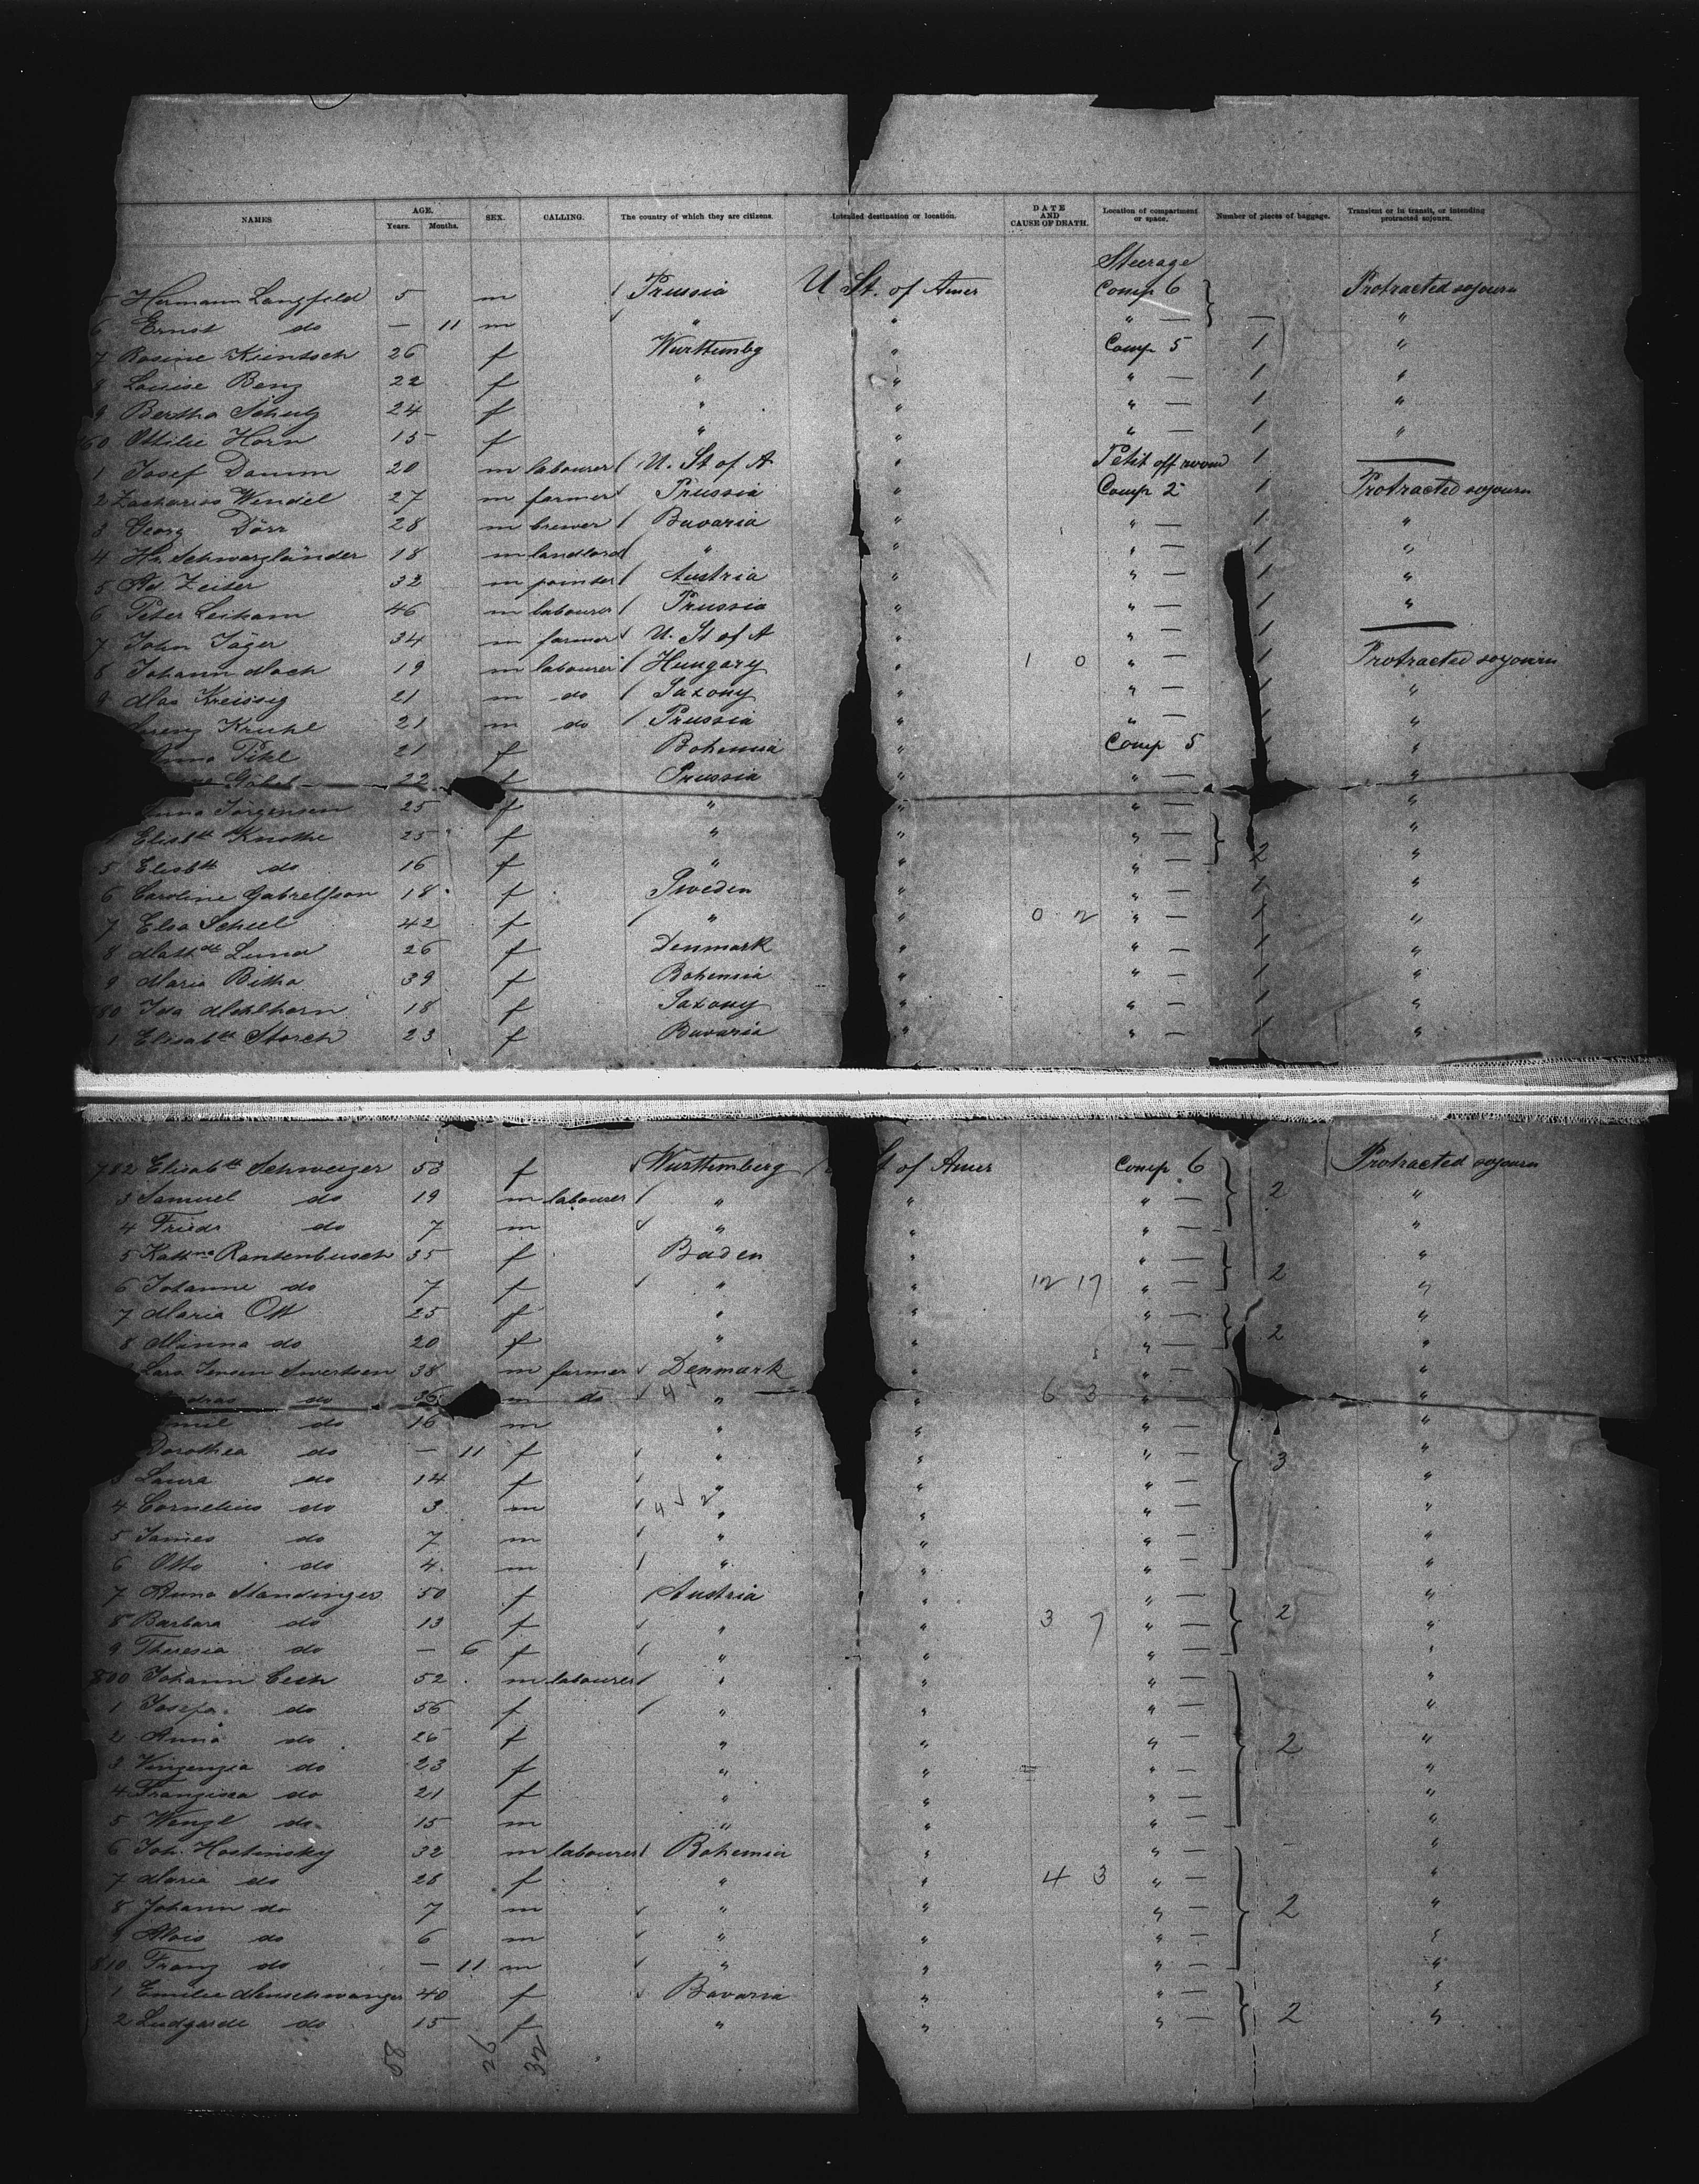 NAMES AGE. Years. Months. SEX. CALLING. The country of which they are citizens. Intended destination or location. DATE AND CAUSE OF DEATH. Location of compartment or space. Number of pieces of baggage. Transient or in transit, or intending protracted sojourn.
Steerage
Hermann Langfeld 5 m Prussia U St. of Amer Comp 6 Protracted sojourn
6 Ernst do — 11 m " " " — — "
7 Rosine Kientsch 26 f Wurttembg " Comp 5 1 "
8 Louise Benz 22 f " " " — 1 "
9 Bertha Schutz 24 f " " " — 1 "
60 Ottilie Horn 15 f " " " — 1 "
1 Josef Damm 20 m labourer U. St of A " Petit off room 1 —
2 Zacharias Wendel 27 m farmer Prussia " Comp 2 1 Protracted sojourn
3 Georg Dörr 28 m brewer Bavaria " " — 1 "
4 Hr. Schwarzländer 18 m landlord " " " — 1 "
5 Ad. Zeiter 32 m painter Austria " " — 1 "
6 Peter Leikam 46 m labourer Prussia " " — 1 "
7 John Jäger 34 m farmer U. St of A " " — 1 —
8 Johann Mach 19 m labourer Hungary " 1 0 " — 1 Protracted sojourn
9 Max Kreissig 21 m do Saxony " " — 1 "
Kruhl 21 m do Prussia " " — 1 "
Anna Pikl 21 f Bohemia " Comp 5 1 "
22 f Prussia " " — "
Jörgensen 25 f " " " — "
Elisbth Knothe 25 f " " " — "
5 Elisbth do 16 f " " " — 2 "
6 Caroline Gabrelfson 18 f Sweden " " — 1 "
7 Elsa Scheel 42 f " " 0 2 " — 1 "
8 Mathde Lund 26 f Denmark " " — 1 "
9 Maria Bitha 39 f Bohemia " " — 1 "
80 Ida Mehlhorn 18 f Saxony " " — 1 "
1 Elisabth Storch 23 f Bavaria " " — 1 "
782 Elisabth Schweizer 53 f Wurttemberg St of Amer Comp 6 Protracted sojourn
3 Samuel do 19 m labourer " " " — 2 "
4 Friedr do 7 m " " " — "
5 Kathna Rantenbusch 35 f Baden " " — "
6 Johanne do 7 f " " 12 17 " — 2 "
7 Maria Ott 25 f " " " — "
8 Minna do 20 f " " " — 2 "
Lars Jensen Sivertsen 38 m farmer Denmark " " — "
do 36 m do 4 " " 6 3 " — "
do 16 m " " " — "
Dorothea do — 11 f " " " — "
3 Laura do 14 f " " " — 3 "
4 Cornelius do 3 m 4 2 " " " — "
5 James do 7 m " " " — "
6 Otto do 4 m " " " — "
7 Anna Standinger 50 f Austria " " — "
8 Barbara do 13 f " " 3 7 " — 2 "
9 Theresia do — 6 f " " " — "
800 Johann Cech 52 m labourer " " " — "
1 Josefa do 56 f " " " — "
2 Anna do 26 f " " " — 2 "
3 Vinzenzia do 23 f " " " — "
4 Franzisca do 21 f " " " — "
5 Wenzl do 15 m " " " — "
6 Joh. Hostinsky 32 m labourer Bohemia " " — "
7 Maria do 28 f " " 4 3 " — "
8 Johann do 7 m " " " — 2 "
9 Alois do 6 m " " " — "
810 Franz do — 11 m " " " — "
1 Emilie Menschwanger 40 f Bavaria " " — "
2 Ludgarde do 15 f " " " — 2 "
58 26 32